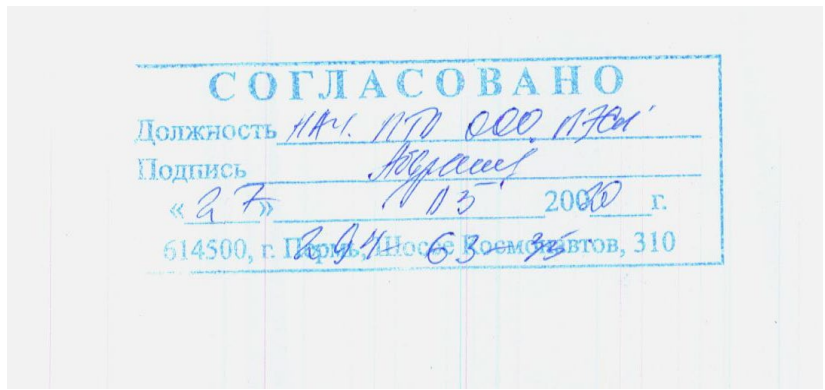 СОГЛАСОВАНО
Должность НАЧ. ПТО ООО
Подпись
«27» 2000 г.
614500, г. Пермь, Шоссе Космонавтов, 310
294-63-35